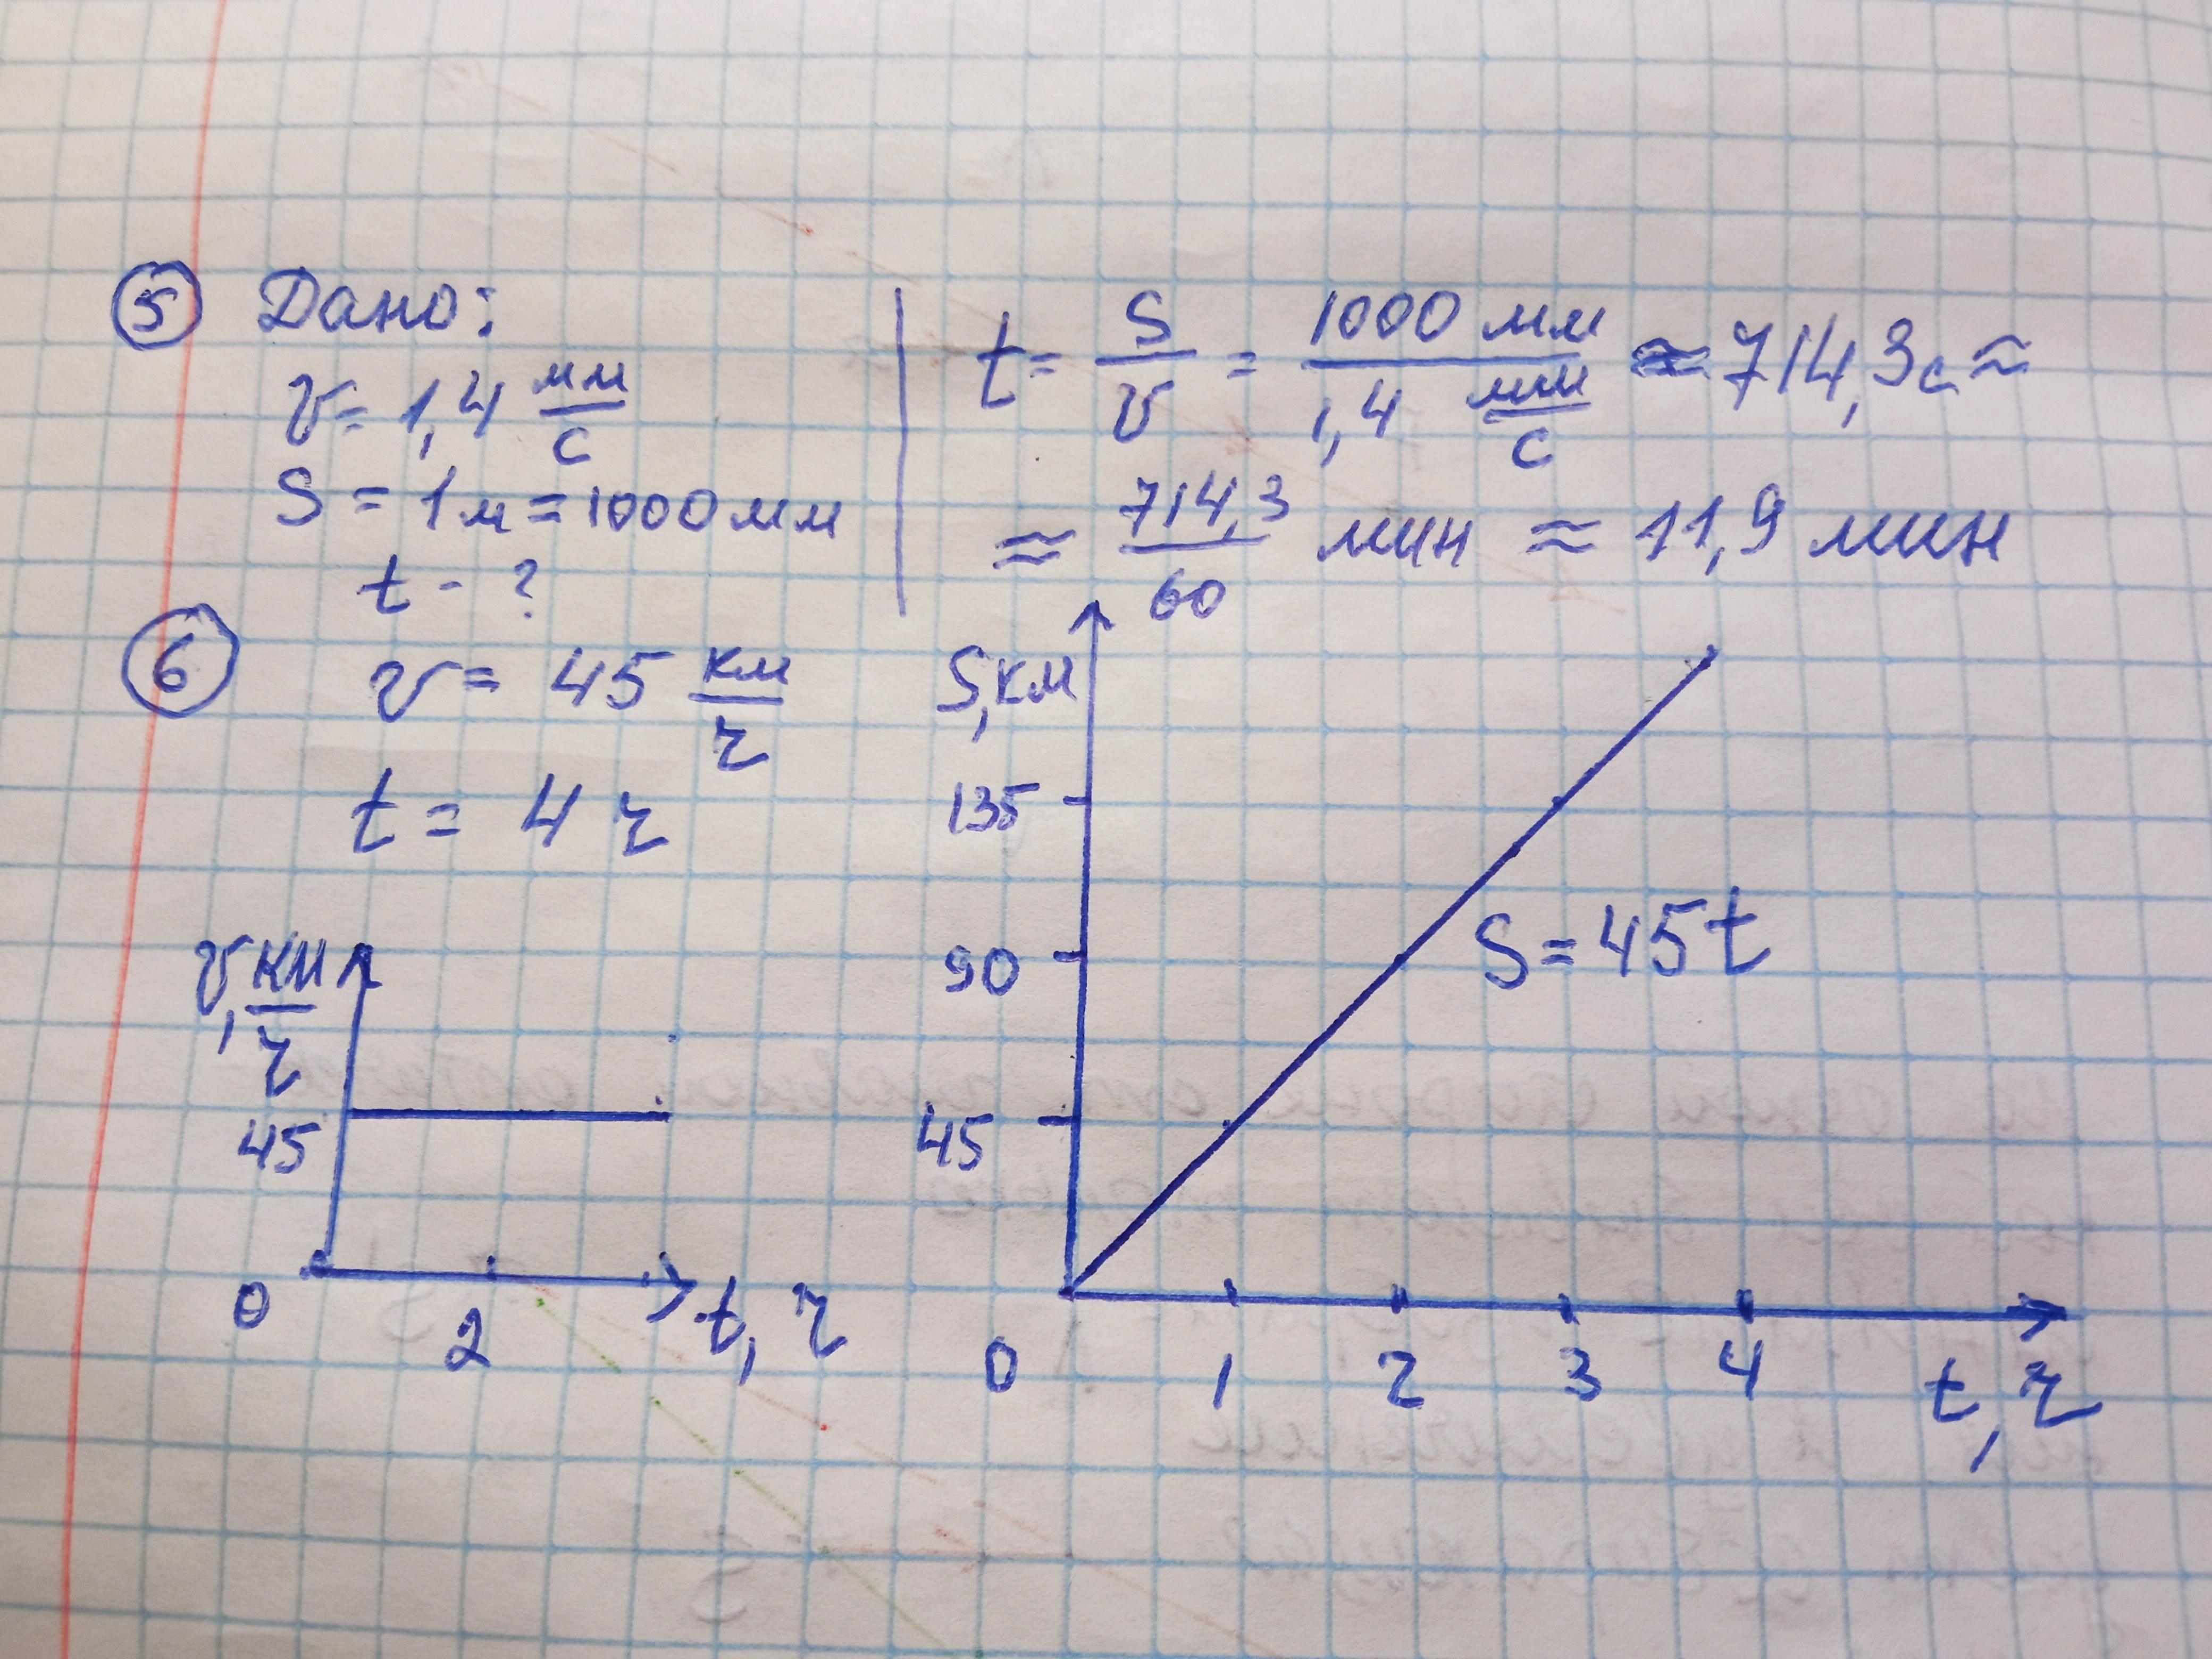 5 Дано:
v = 1,4 мм/с
S = 1 м = 1000 мм
t - ?
t = S/v = 1000 мм / 1,4 мм/с ≈ 714,3 с ≈
≈ 714,3/60 мин ≈ 11,9 мин
6 v = 45 км/ч
t = 4 ч
v, км/ч
45
0
2
t, ч
S, км
135
90
45
S = 45t
0 1 2 3 4 t, ч